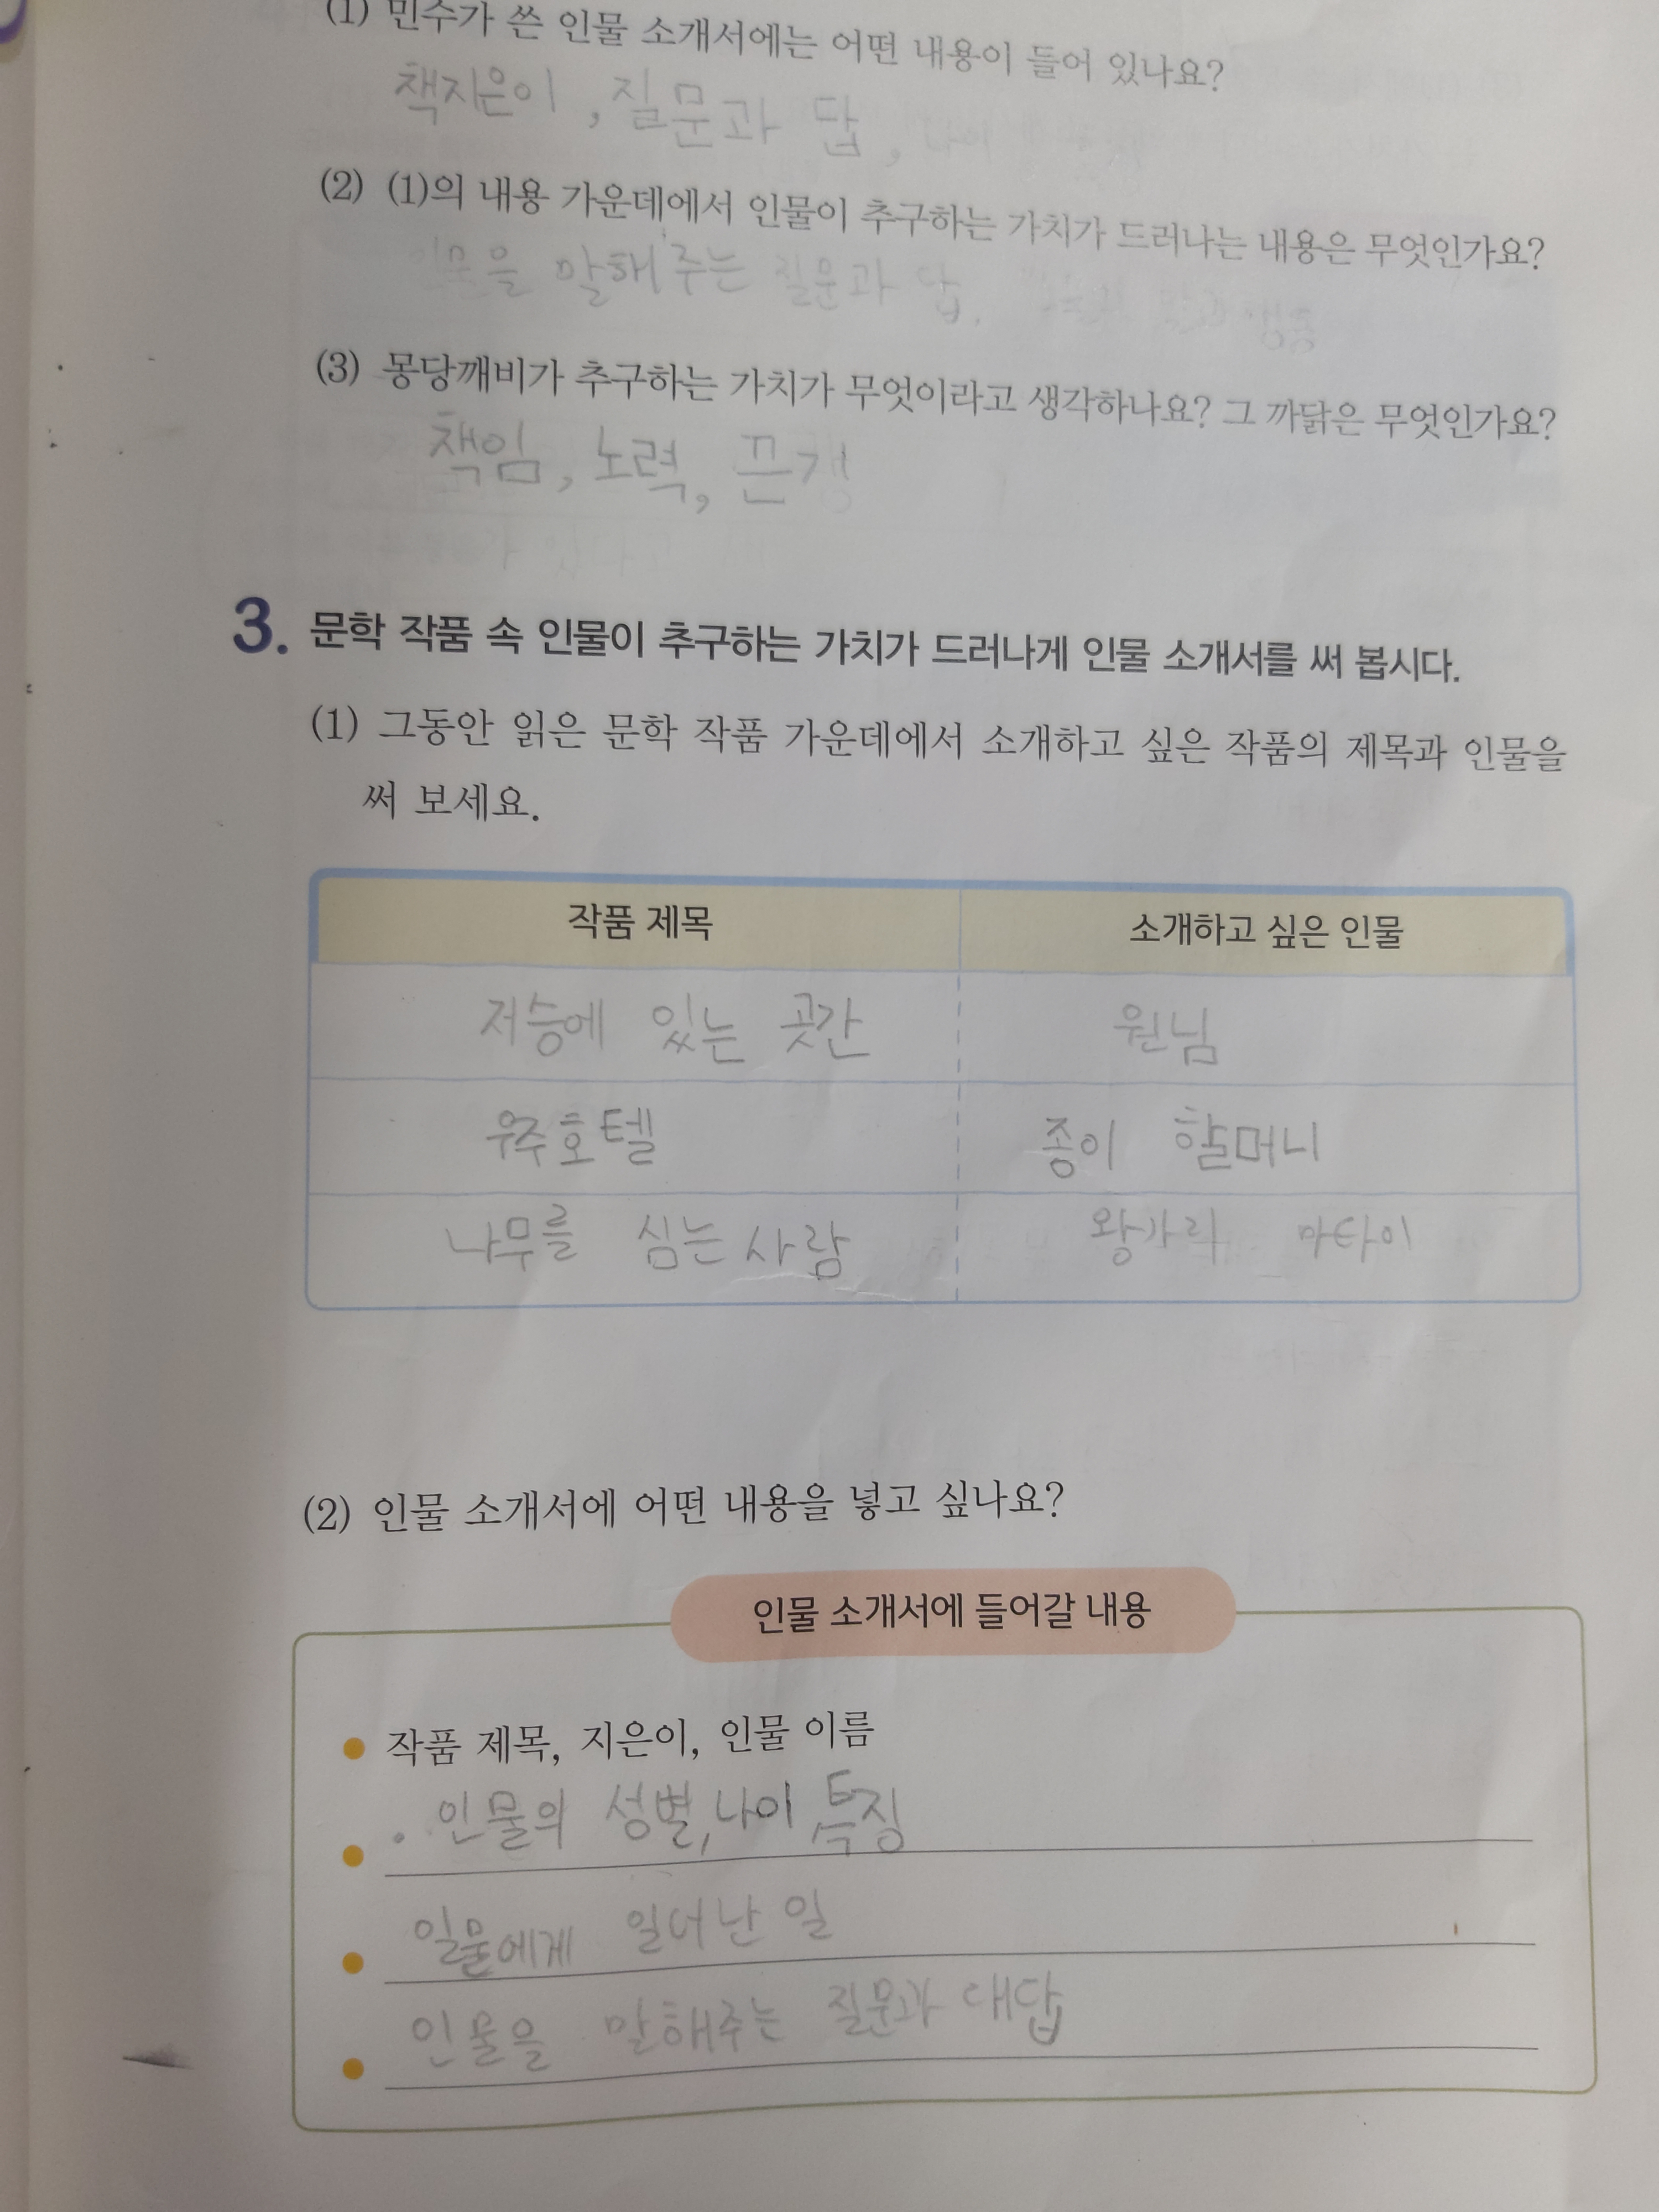 (1) 민수가 쓴 인물 소개서에는 어떤 내용이 들어 있나요?
책지은이, 질문과 답,
(2) (1)의 내용 가운데에서 인물이 추구하는 가치가 드러나는 내용은 무엇인가요?
인물을 말해주는 질문과 답.
(3) 몽당깨비가 추구하는 가치가 무엇이라고 생각하나요? 그 까닭은 무엇인가요?
책임, 노력, 끈기
3. 문학 작품 속 인물이 추구하는 가치가 드러나게 인물 소개서를 써 봅시다.
(1) 그동안 읽은 문학 작품 가운데에서 소개하고 싶은 작품의 제목과 인물을
써 보세요.
작품 제목 소개하고 싶은 인물
저승에 있는 곳간 원님
우주호텔 종이 할머니
나무를 심는 사람 왕가리 마타이
(2) 인물 소개서에 어떤 내용을 넣고 싶나요?
인물 소개서에 들어갈 내용
작품 제목, 지은이, 인물 이름
인물의 성별, 나이, 특징
일물에게 일어난 일
인물을 말해주는 질문과 대답